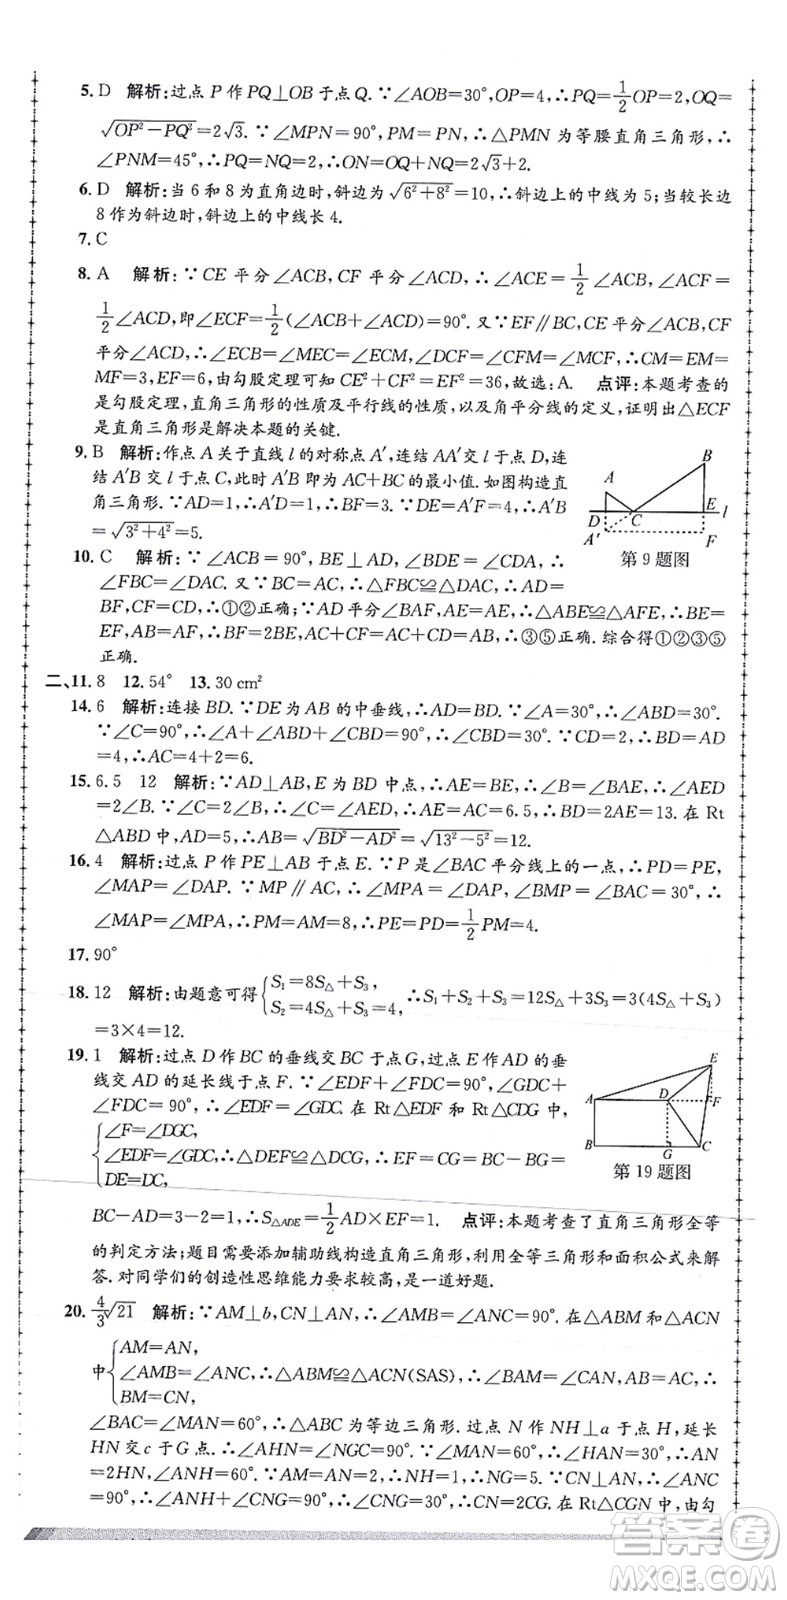 5. D 解析:过点 P 作 PQ⊥OB 于点 Q. ∵∠AOB=30°,OP=4,∴PQ=1/2OP=2,OQ=
√(OP²-PQ²)=2√3. ∵∠MPN=90°,PM=PN,∴△PMN 为等腰直角三角形,∴
∠PNM=45°,∴PQ=NQ=2,∴ON=OQ+NQ=2√3+2.
6. D 解析:当 6 和 8 为直角边时,斜边为√(6²+8²)=10,∴斜边上的中线为 5;当较长边
8 作为斜边时,斜边上的中线长 4.
7. C
8. A 解析:∵CE 平分∠ACB,CF 平分∠ACD,∴∠ACE=1/2∠ACB,∠ACF=
1/2∠ACD,即∠ECF=1/2(∠ACB+∠ACD)=90°. 又∵EF∥BC,CE 平分∠ACB,CF
平分∠ACD,∴∠ECB=∠MEC=∠ECM,∠DCF=∠CFM=∠MCF,∴CM=EM=
MF=3,EF=6,由勾股定理可知 CE²+CF²=EF²=36,故选:A. 点评:本题考查的
是勾股定理,直角三角形的性质及平行线的性质,以及角平分线的定义,证明出△ECF
是直角三角形是解决本题的关键.
9. B 解析:作点 A 关于直线 l 的对称点 A′,连结 AA′交 l 于点 D,连结
A′B 交 l 于点 C,此时 A′B 即为 AC+BC 的最小值. 如图构造直
角三角形. ∵AD=1,∴A′D=1,BF=3. ∵DE=A′F=4,∴A′B
=√(3²+4²)=5.
A B D C E l A′ F
第 9 题图
10. C 解析:∵∠ACB=90°,BE⊥AD,∠BDE=∠CDA,∴
∠FBC=∠DAC. 又∵BC=AC,∴△FBC≌△DAC,∴AD=
BF,CF=CD,∴①②正确;∵AD 平分∠BAF,AE=AE,∴△ABE≌△AFE,∴BE=
EF,∴BF=2BE,AC+CF=AC+CD=AF=AB,∴③⑤正确. 综合得①②③⑤
正确.
二、11. 8 12. 54° 13. 30 cm²
14. 6 解析:连接 BD. ∵DE 为 AB 的中垂线,∴AD=BD. ∵∠A=30°,∴∠ABD=30°.
∵∠C=90°,∴∠A+∠ABD+∠DBC=90°,∴∠DBC=30°. ∵CD=2,∴BD=AD
=4,∴AC=4+2=6.
15. 6.5 12 解析:∵AD⊥AB,E 为 BD 中点,∴AE=BE,∴∠B=∠BAE,∴∠AED
=2∠B. ∵∠C=2∠B,∴∠C=∠AED,∴AE=AC=6.5,∴BD=2AE=13. 在 Rt
△ABD 中,AD=5,∴AB=√(BD²-AD²)=√(13²-5²)=12.
16. 4 解析:过点 P 作 PE⊥AB 于点 E. ∵P 是∠BAC 平分线上的一点,∴PD=PE,
∠MAP=∠DAP. ∵PM∥AC,∴∠MPA=∠DAP,∠BMP=∠BAC=30°,∴
∠MAP=∠MPA,∴PM=AM=8,∴PE=PD=1/2PM=4.
17. 90°
18. 12 解析:由题意可得{S₁=8S△+S₃, S₂=4S△+S₃=4, ∴S₁+S₂+S₃=12S△+3S₃=3(4S△+S₃)
=3×4=12.
19. 1 解析:过点 D 作 BC 的垂线交 BC 于点 G,过点 E 作 AD 的垂
线交 AD 的延长线于点 F. ∵∠EDF+∠FDC=90°,∠GDC+
∠FDC=90°,∴∠EDF=∠GDC. 在 Rt△EDF 和 Rt△CDG 中,
{∠F=∠DGC,
∠EDF=∠GDC,∴△DEF≌△DCG,∴EF=CG=BC-BG=
DE=DC,
E A D F B G C
第 19 题图
BC-AD=3-2=1,∴S△ADE=1/2AD×EF=1. 点评:本题考查了直角三角形全等
的判定方法;题目需要添加辅助线构造直角三角形,利用全等三角形和面积公式来解
答. 对同学们的创造性思维能力要求较高,是一道好题.
20. 4/3√21 解析:∵AM⊥b,CN⊥AN,∴∠AMB=∠ANC=90°. 在△ABM 和△ACN
中{AM=AN,
∠AMB=∠ANC,∴△ABM≌△ACN(SAS),∴∠BAM=∠CAN,AB=AC,∴
BM=CN,
∠BAC=∠MAN=60°,∴△ABC 为等边三角形. 过点 N 作 NH⊥a 于点 H,延长
HN 交 c 于 G 点. ∴∠AHN=∠NGC=90°. ∵∠MAN=60°,∴∠HAN=30°,∴AN
=2HN,∠ANH=60°. ∵AN=AM=2,∴NH=1,∴NG=5. ∵∠ANH+∠CNG
=90°,∠ANH+∠CNG=90°,∴∠CNG=30°,∴CN=2CG. 在 Rt△CGN 中,由勾
答案圈
MXQE.COM